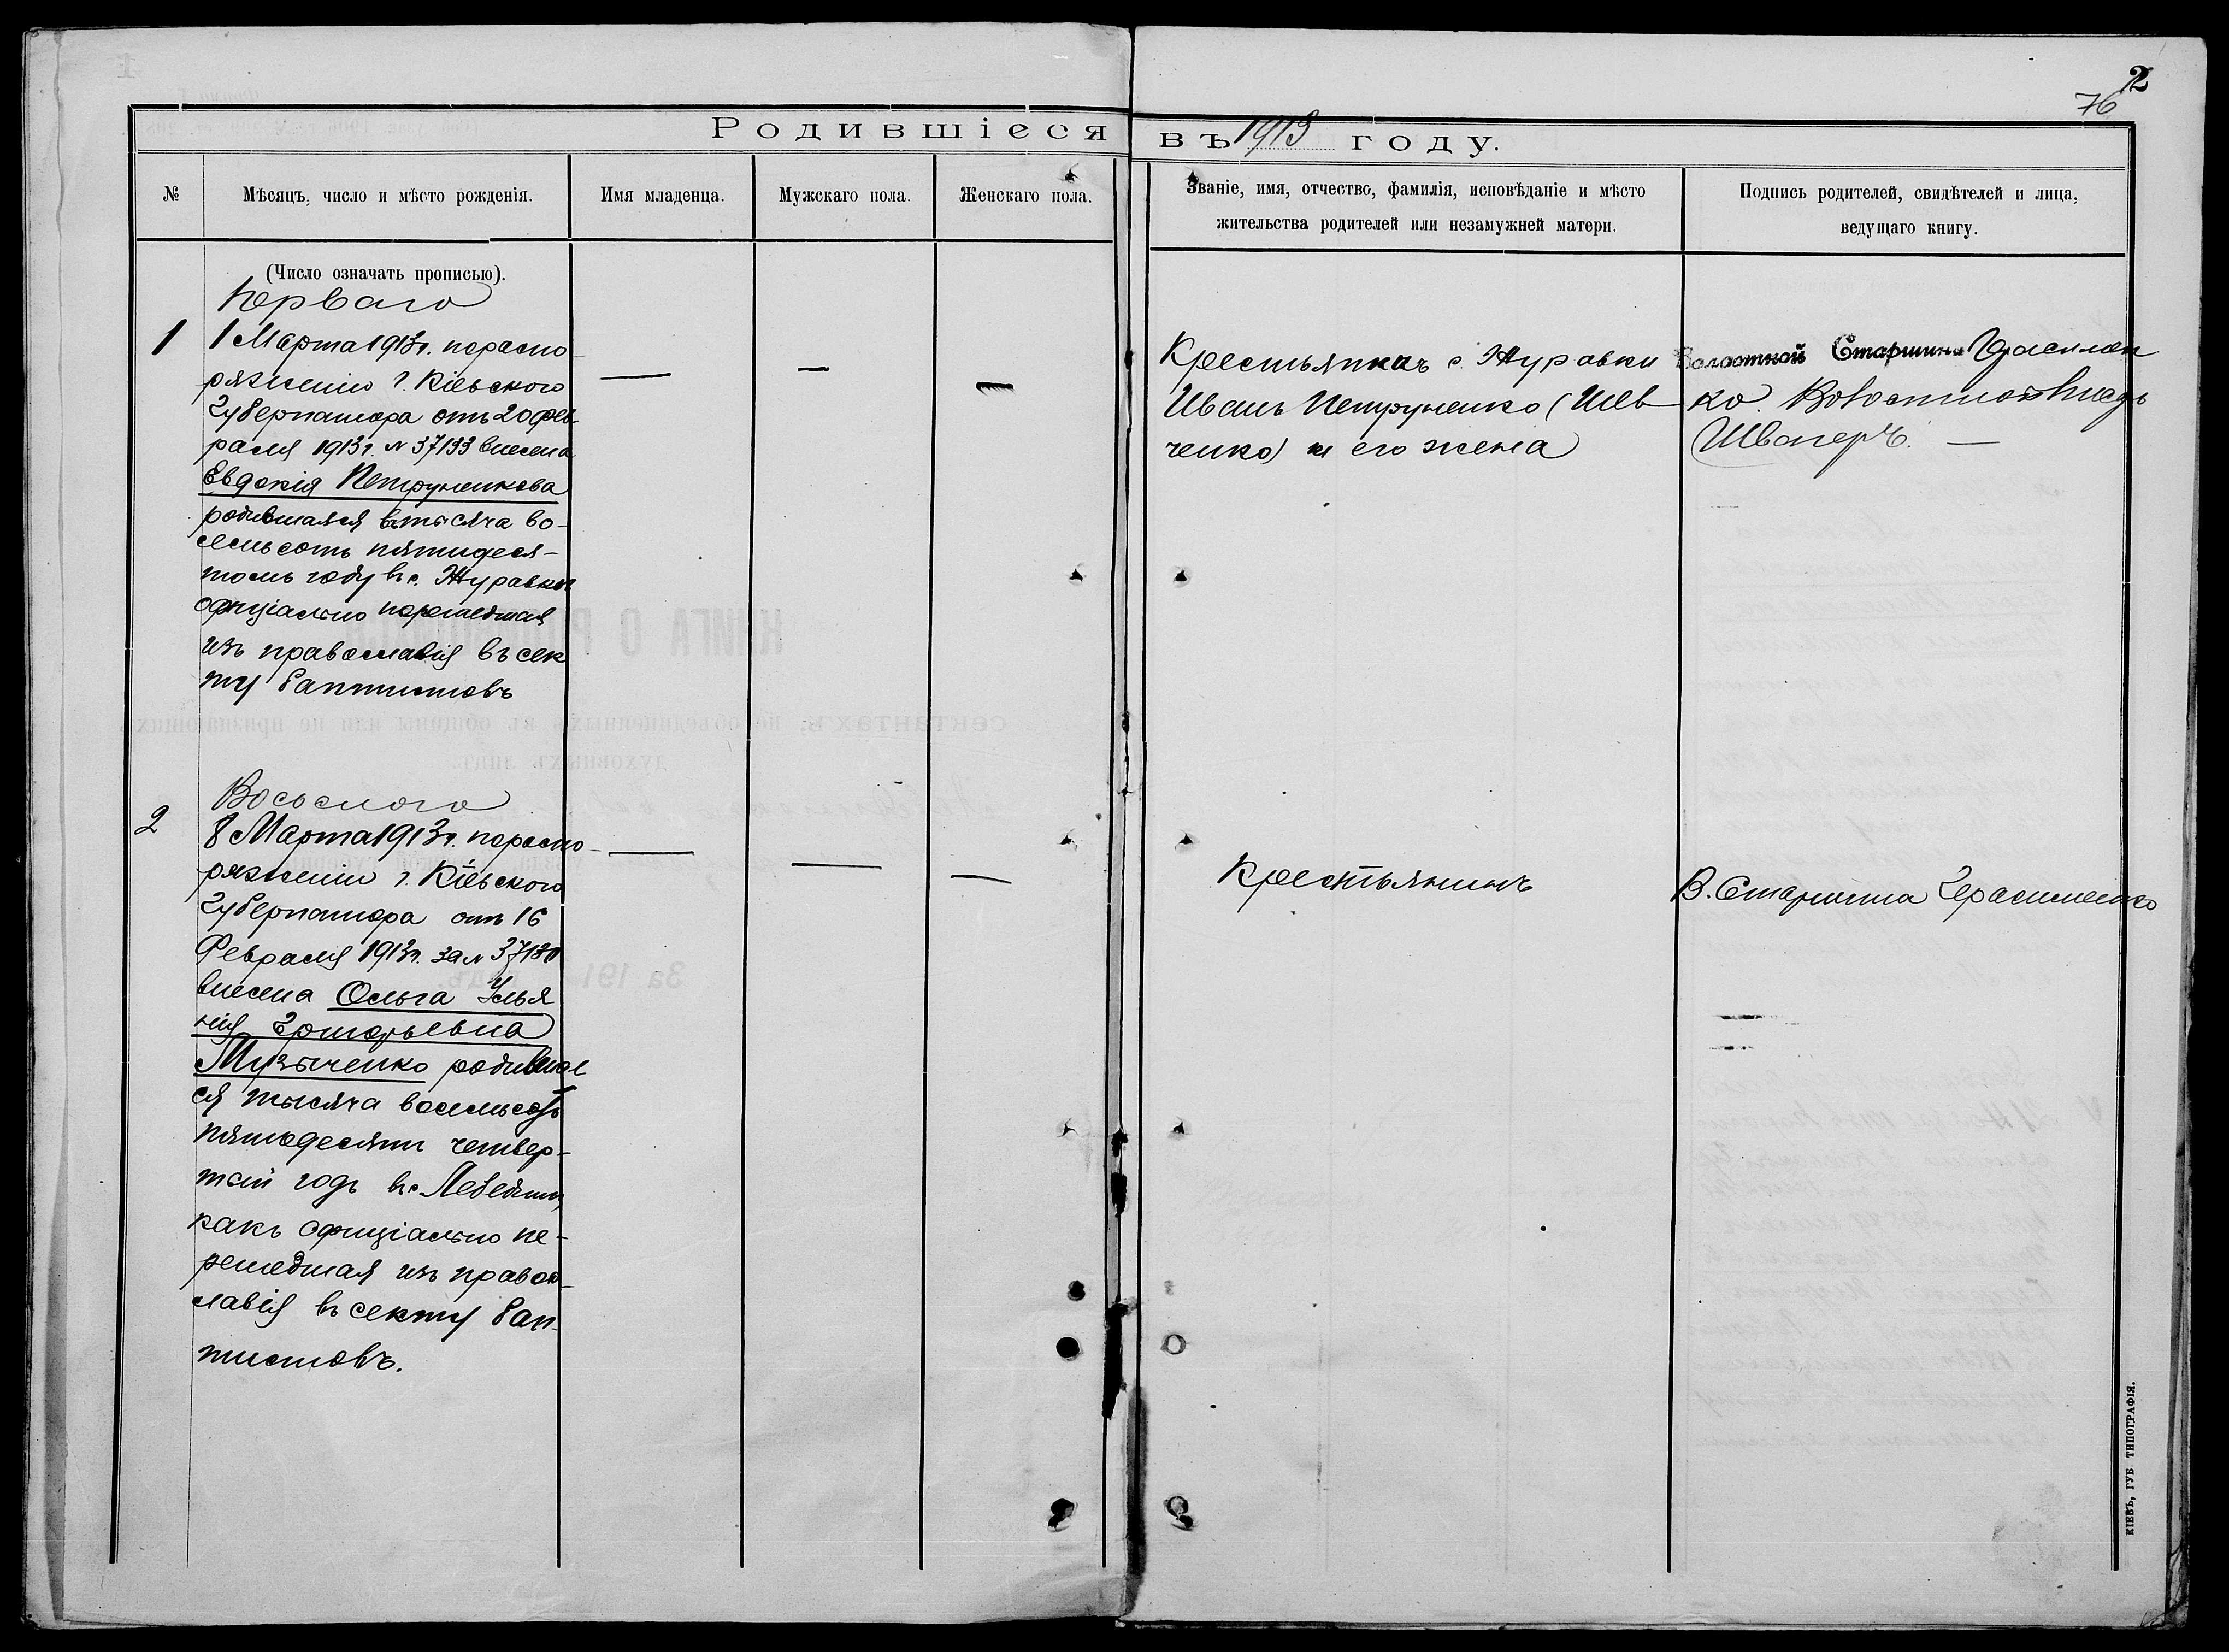 2
76
Родившіеся въ 1913 году.
№
Мѣсяцъ, число и мѣсто рожденія.
Имя младенца.
Мужскаго пола.
Женскаго пола.
Званіе, имя, отчество, фамилія, исповѣданіе и мѣсто
жительства родителей или незамужней матери.
Подпись родителей, свидѣтелей и лица,
ведущаго книгу.
(Число означать прописью).
Перваго
1
1 Марта 1913 г. по распо-
ряженію г. Кіевского
Губернатора отъ 20 фев
раля 1913 г. № 37133 внесена
Евдокія Петруненкова
родившаяся въ тысяча во-
семьсотъ пятидеся-
томъ году въ с. Журавки
офиціально перешедшая
изъ православія въ сек
ту баптистовъ
—
—
—
с. Журавки
Иванъ Петруненко (Шев
ченко) и его жена
Волостной Старшина
ко. Волостной
2
Восьмого
8 Марта 1913 г. по распо-
ряженію г. Кіевского
Губернатора отъ 16
Февраля 1913 г. за № 37130
внесена Ольга Улья
нія Григорьевна
Музыченко родившая
ся тысяча восемьсотъ
пятьдесятъ четвер-
тый годъ въ с. Лебедин
какъ офиціально пе-
решедшая изъ право-
славія въ секту бап-
тистовъ.
—
—
—
Крестьянинъ
В. Старшина Герасименко
КІЕВЪ, ГУБ ТИПОГРАФІЯ.